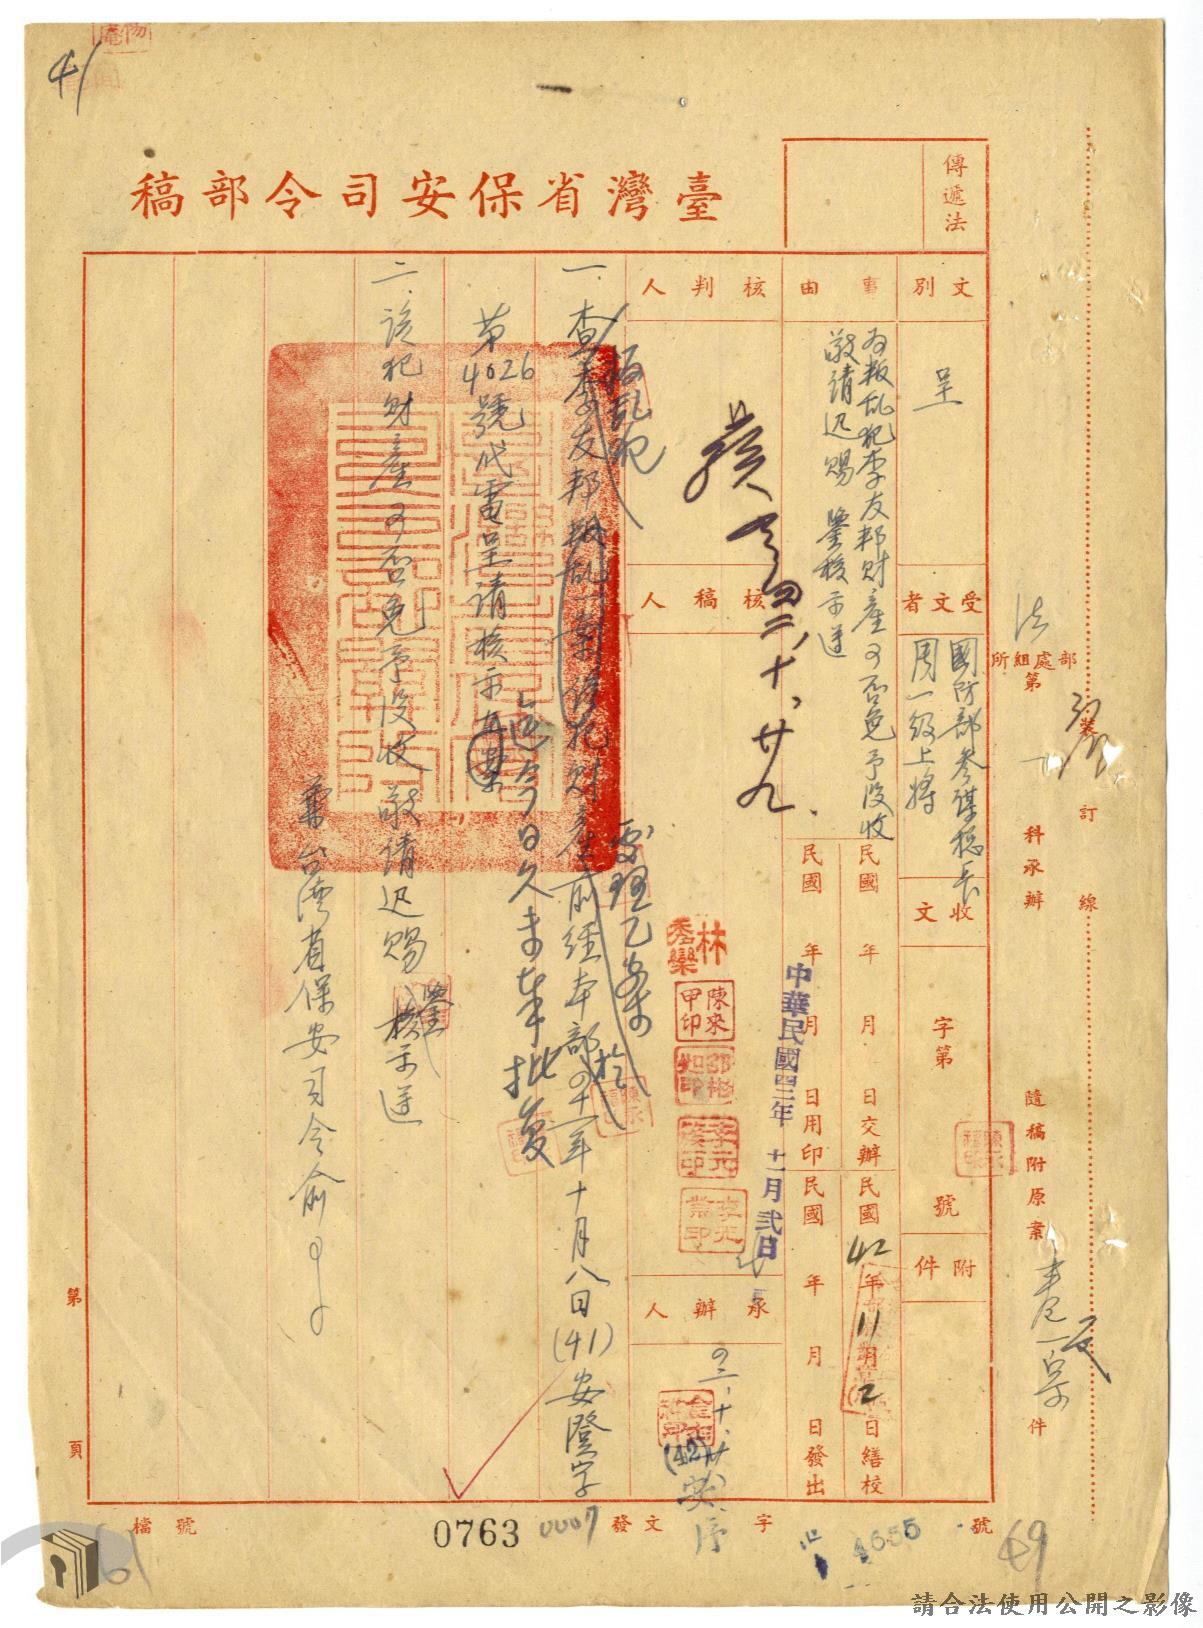 41
臺灣省保安司令部稿
傳遞法
文別
呈
受文者
國防部參謀總長
周一級上將
收文
字第
號
附件
事由
為叛乱犯李友邦財產可否免予沒收
敬請迅賜 鑒核示遵
民國 年 月 日交辦
民國 42 年 11 月 2 日繕校
民國 年 月 日用印
民國 年 月 日發出
中華民國四二年十一月弍日
核判人
四二、十、廿九、
核稿人
林秀欒
陳來甲印
承辦人
叛乱犯
處理乙案
於
一、查李友邦叛乱一案
財產前經本部四十一年十月八日(41)安澄字
第4026號代電呈請核示
迄今日久未奉批复
二、該犯財產可否免予沒收敬請迅賜 鑒核示遵
台灣省保安司令俞
部處組所
法
第
科承辦
裝
訂
線
隨稿附原案
件
第
頁
檔號
0763
0007
發文
(42)安
字
4655
號
49
61
請合法使用公開之影像